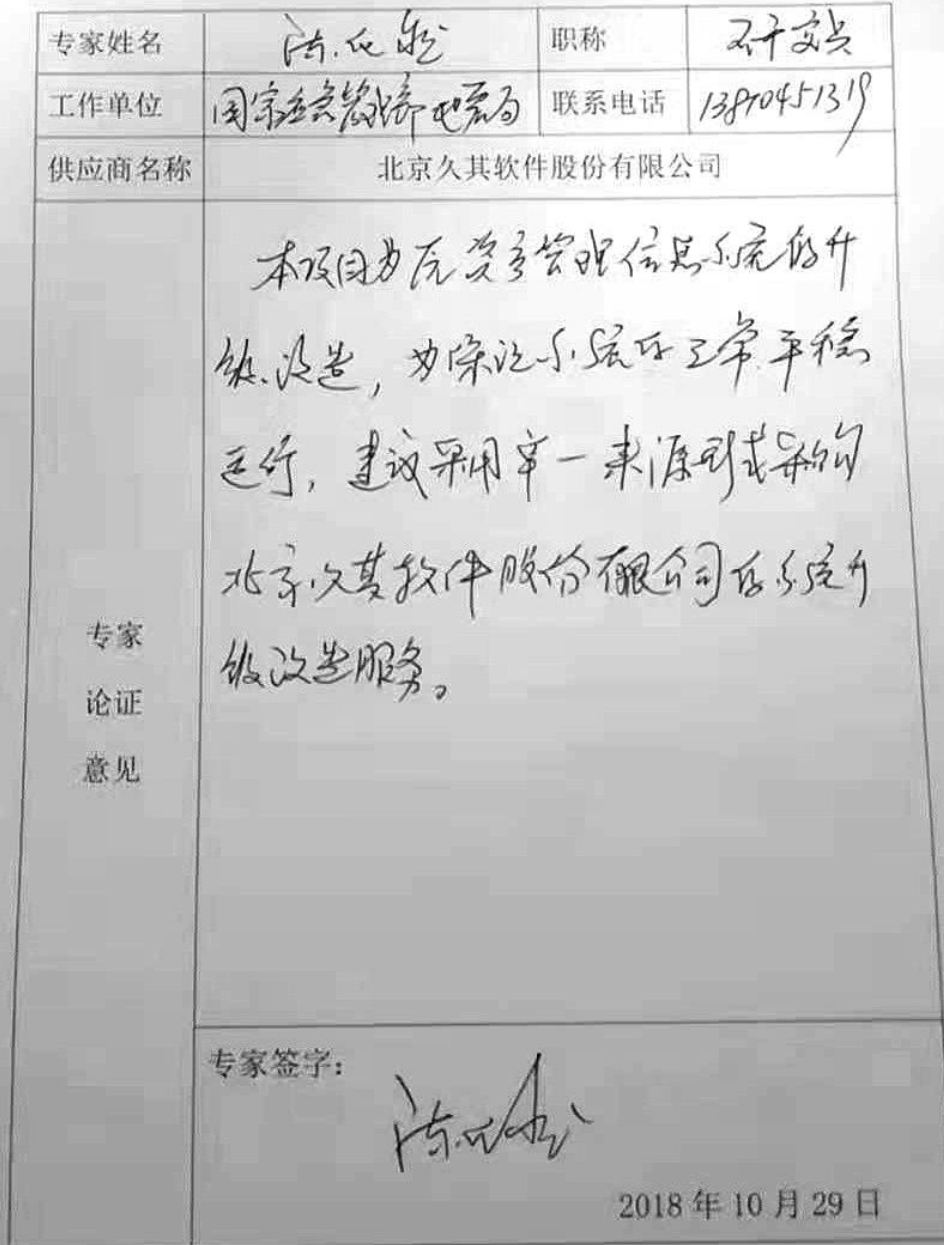 专家姓名 职称 研究员
工作单位 国家应急管理部地震局 联系电话 13810451319
供应商名称 北京久其软件股份有限公司
本项目为原资产管理信息系统的升
级改造，为保证系统的正常平稳
运行，建议采用单一来源形式采购
北京久其软件股份有限公司的系统升
级改造服务。
专家
论证
意见
专家签字：
2018年10月29日